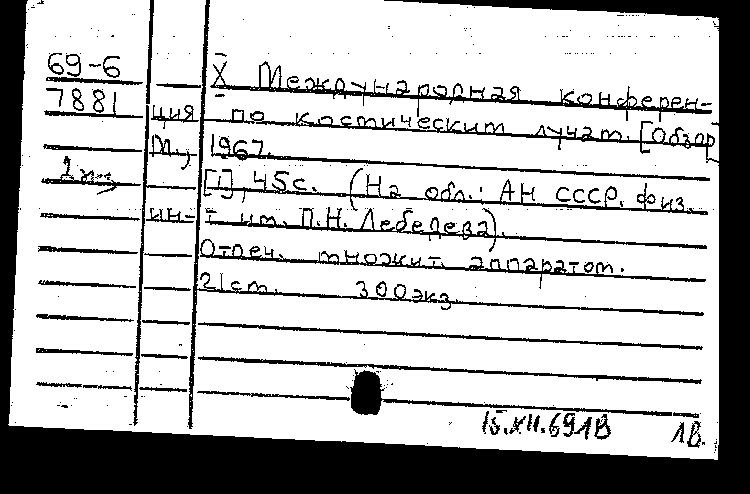 69-6
X Международная конферен-
7881
ция по космическим лучам. [Обзор
М., 1967.
[1], 45с. (На обл.: АН СССР. Физ.
ин-т им. П.Н. Лебедева).
Отпеч. множит. аппаратом.
21см. 300экз.
15.XII.69 1В 1В.